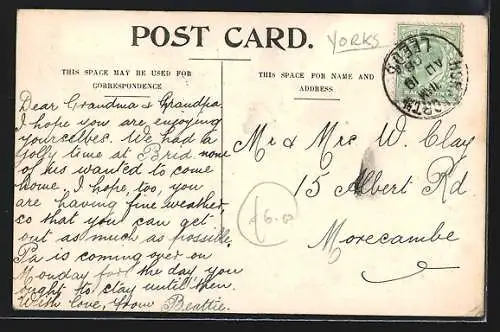 POST CARD.
YORKS
THIS SPACE MAY BE USED FOR
CORRESPONDENCE
THIS SPACE FOR NAME AND
ADDRESS
HORSFORTH
LEEDS
AU 19
Dear Grandma & Grandpa
I hope you are enjoying
yourselves. We had a
jolly time at Brid none
of us wanted to come
home. I hope, too, you
are having fine weather,
so that you can get
out as much as possible.
Pa is coming over on
Monday for the day you
ought to stay until then.
With love, from Beattie.
Mr & Mrs W. Clay
15 Albert Rd
Morecambe
£6.00